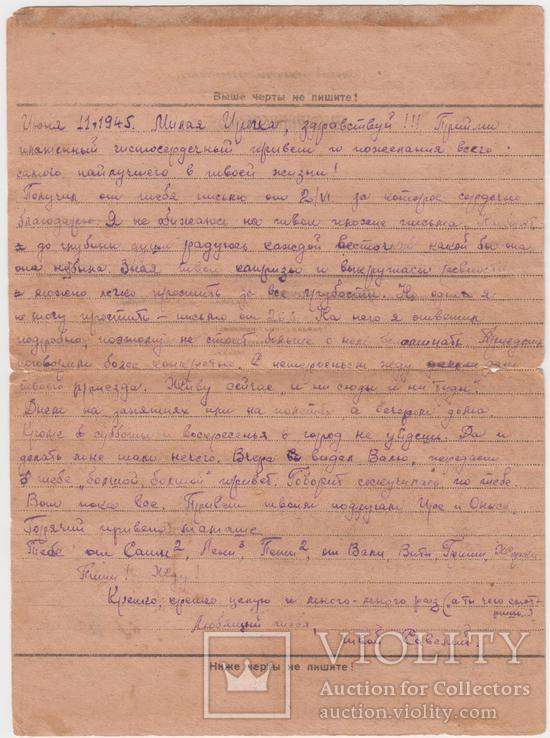 Выше черты не пишите!
Июня 11. 1945. Милая Ирочка, здравствуй!!! Прийми
пламенный чистосердечный привет и пожелания всего
самого найлучшего в твоей жизни!
Получил от тебя письмо от 2/VI. за которое сердечно
благодарю. Я не обижаюсь на твои плохие письма.
до глубины души радуюсь каждой весточке какой бы она
она небыла. Зная твои капризы и выкрутасы
можно легко простить за все грубости. Но одного я
не могу простить - письмо от 26.5. На него я ответил
подробно, поэтому не стоит больше о нем
поговорим более конкретно. С нетерпеньем жду
твоего приезда. Живу сейчас "и ни сюды и ни туды".
Днем на занятиях а вечером дома.
Кроме в субботы и воскресенья в город не уйдешь. Да и
делать мне там нечего. Вчера видел Валю, передает
тебе "большой, большой" привет. Говорит соскучилась по тебе.
Вот пока все. Привет твоим подругам Ире и
Горячий привет мамаше.
Тебе от Саши², Лени³, Пети², от Вали, Вити, Гриши,
Пиши! Жду!
Крепко, крепко целую и много-много раз (а ты чего смот-
ришь.)
Любящий тебя,
твой
Ниже черты не пишите!
VIOLITY
Auction for Collectors
auction.violity.com